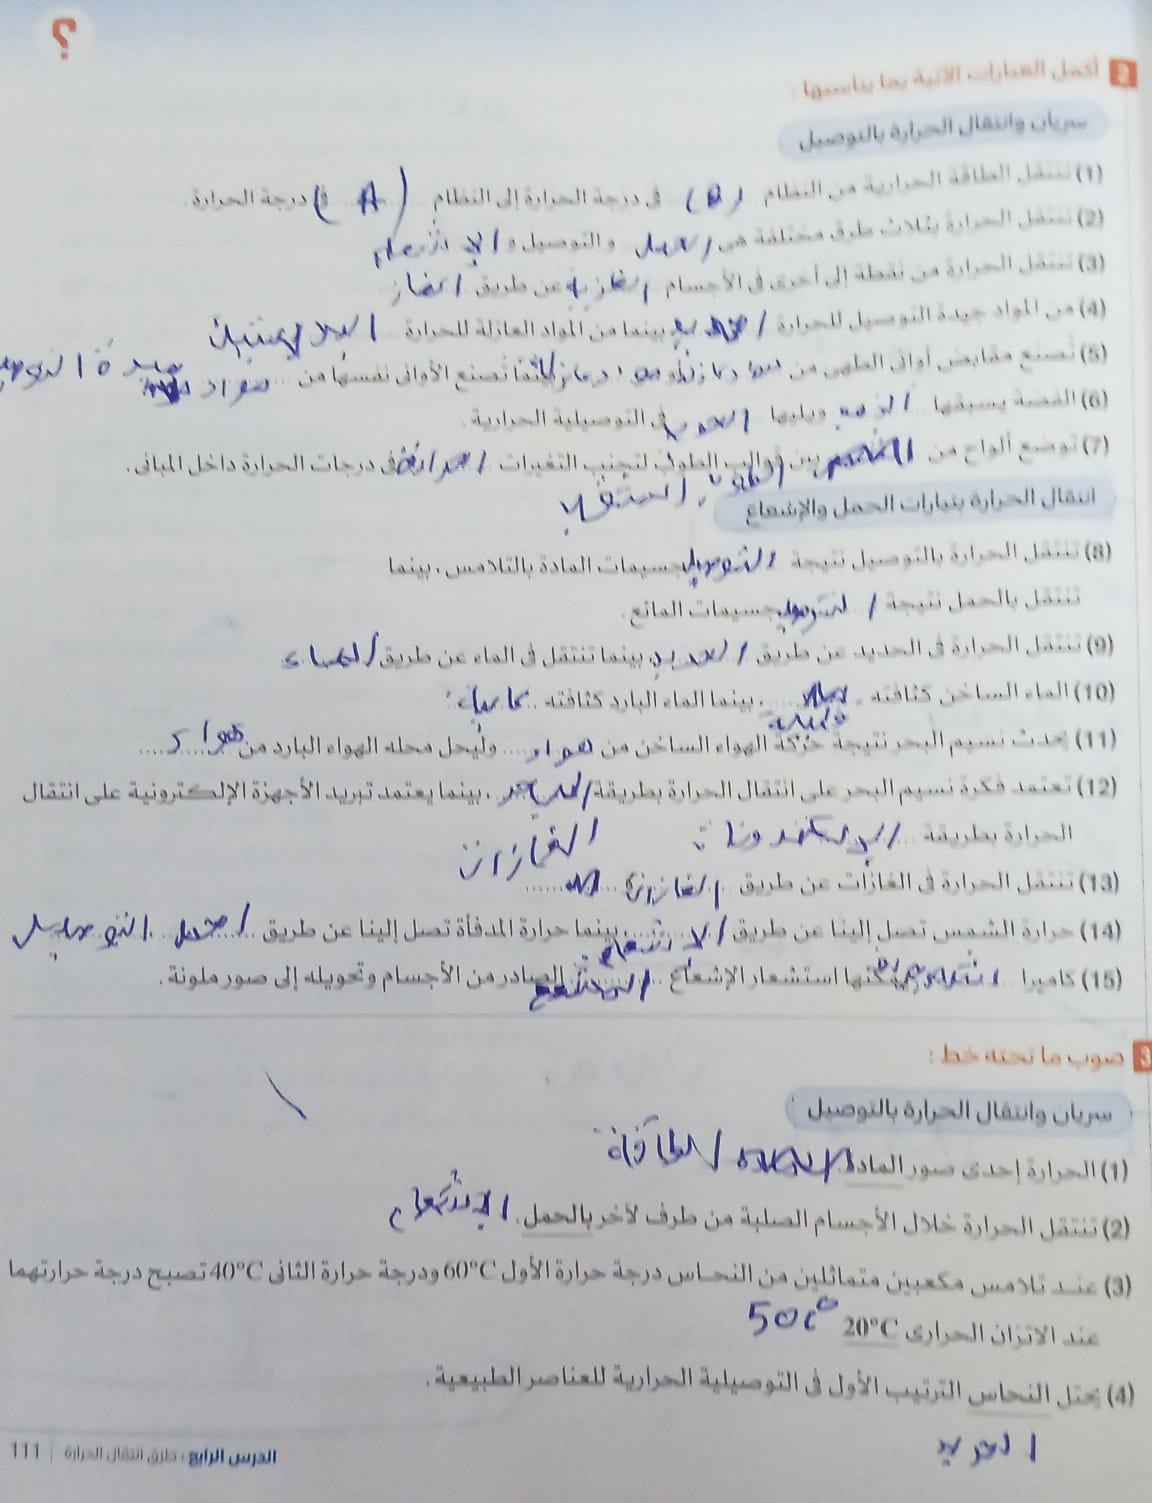 ؟
2 أكمل العبارات الآتية بما يناسبها :
سريان وانتقال الحرارة بالتوصيل
(1) تنتقل الطاقة الحرارية من النظام (B) فى درجة الحرارة إلى النظام (A) فى درجة الحرارة.
(2) تنتقل الحرارة بثلاث طرق مختلفة هى الحمل والتوصيل و الإشعاع
(3) تنتقل الحرارة من نقطة إلى أخرى فى الأجسام الغازية عن طريق الغاز
(4) من المواد جيدة التوصيل للحرارة الحديد بينما من المواد العازلة للحرارة البلاستيك
(5) تُصنع مقابض أوانى الطهى من مواد عازلة بينما تُصنع الأوانى نفسها من مواد جيدة التوصيل
(6) الفضة يسبقها ويليها فى التوصيلية الحرارية.
(7) توضع ألواح من بين قوالب الطوب لتجنب التغيرات فى درجات الحرارة داخل المبانى.
انتقال الحرارة بتيارات الحمل والإشعاع
(8) تنتقل الحرارة بالتوصيل نتيجة التوصيل جسيمات المادة بالتلامس، بينما
تنتقل بالحمل نتيجة جسيمات المائع.
(9) تنتقل الحرارة فى الحديد عن طريق الحديد بينما تنتقل فى الماء عن طريق الماء
(10) الماء الساخن كثافته قليلة، بينما الماء البارد كثافته
(11) يحدث نسيم البحر نتيجة حركة الهواء الساخن من هواء وليحل محله الهواء البارد من هواء
(12) تعتمد فكرة نسيم البحر على انتقال الحرارة بطريقة، بينما يعتمد تبريد الأجهزة الإلكترونية على انتقال
الحرارة بطريقة
(13) تنتقل الحرارة فى الغازات عن طريق الغازات
(14) حرارة الشمس تصل إلينا عن طريق الإشعاع، بينما حرارة المدفأة تصل إلينا عن طريق الحمل التوصيل
(15) كاميرا يمكنها استشعار الإشعاع الصادر من الأجسام وتحويله إلى صور ملونة.
3 صوب ما تحته خط :
سريان وانتقال الحرارة بالتوصيل
(1) الحرارة إحدى صور المادة. الطاقة
(2) تنتقل الحرارة خلال الأجسام الصلبة من طرف لآخر بالحمل. الإشعاع
(3) عند تلامس مكعبين متماثلين من النحاس درجة حرارة الأول 60°C ودرجة حرارة الثانى 40°C تصبح درجة حرارتهما
عند الاتزان الحرارى 20°C 50c°
(4) يحتل النحاس الترتيب الأول فى التوصيلية الحرارية للعناصر الطبيعية.
الحديد
الدرس الرابع : طرق انتقال الحرارة 111